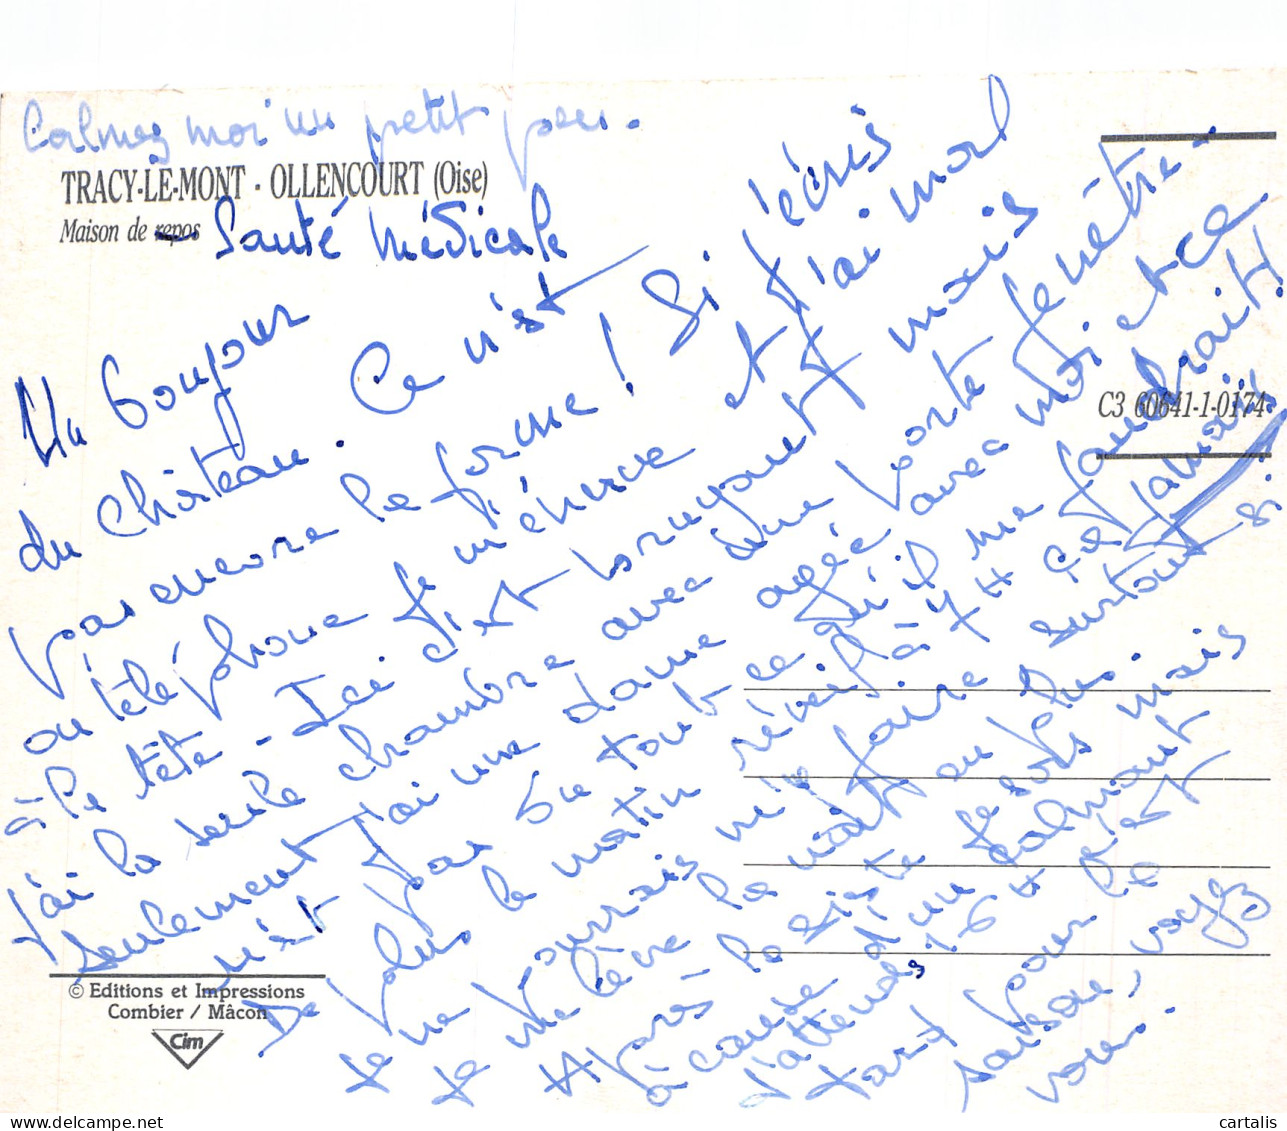 Calmez moi un petit peu.
TRACY-LE-MONT - OLLENCOURT (Oise)
Maison de repos
Santé Médicale
Un bonjour
du Château. Ce n'est
pas encore la forme ! Si j'écris
ou téléphone je m'énerve et j'ai mal
à la tête - Ici c'est bruyant mais
j'ai la seule chambre avec une porte fenêtre -
seulement j'ai une dame agée avec moi et ce
n'est pas du tout ce qu'il me faudrait !
De plus le matin réveil à 7 H ça jamais
je ne pourrais m'y faire surtout si
je me lève la nuit en plus.
Après la sieste je sors mais
à cause d'un calmant
j'attends 16 H c'est
tard pour la
saison, voyez
vous.
C3 60641-1-0174
© Editions et Impressions
Combier / Mâcon
Cim
cartalis